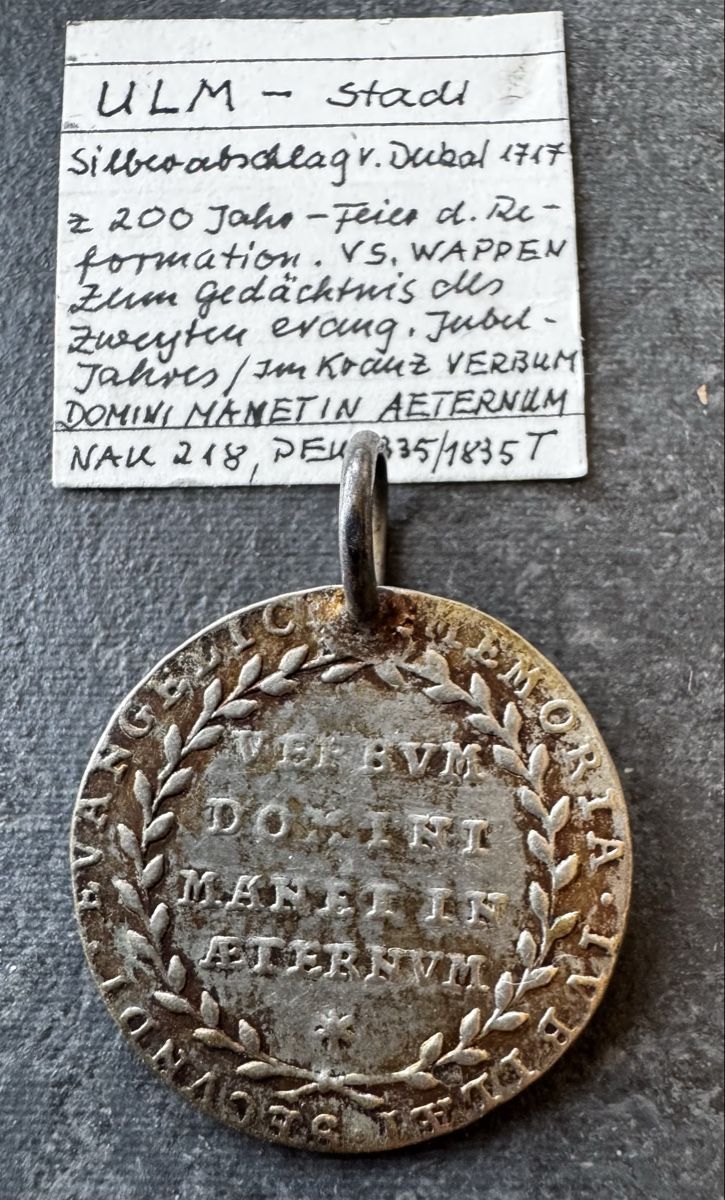 ULM - Stadt
Silberabschlag v. Dukat 1717
z 200 Jahr-Feier d. Re-
formation. VS. WAPPEN
Zum Gedächtnis des
Zweyten evang. Jubel-
Jahres / Im Kranz VERBUM
DOMINI MANET IN AETERNUM
NAU 218, 335/1835 T
MEMORIA · IVBILÆI SECVNDI · EVANGELICI
VERBVM
DOMINI
MANET IN
ÆTERNVM
*